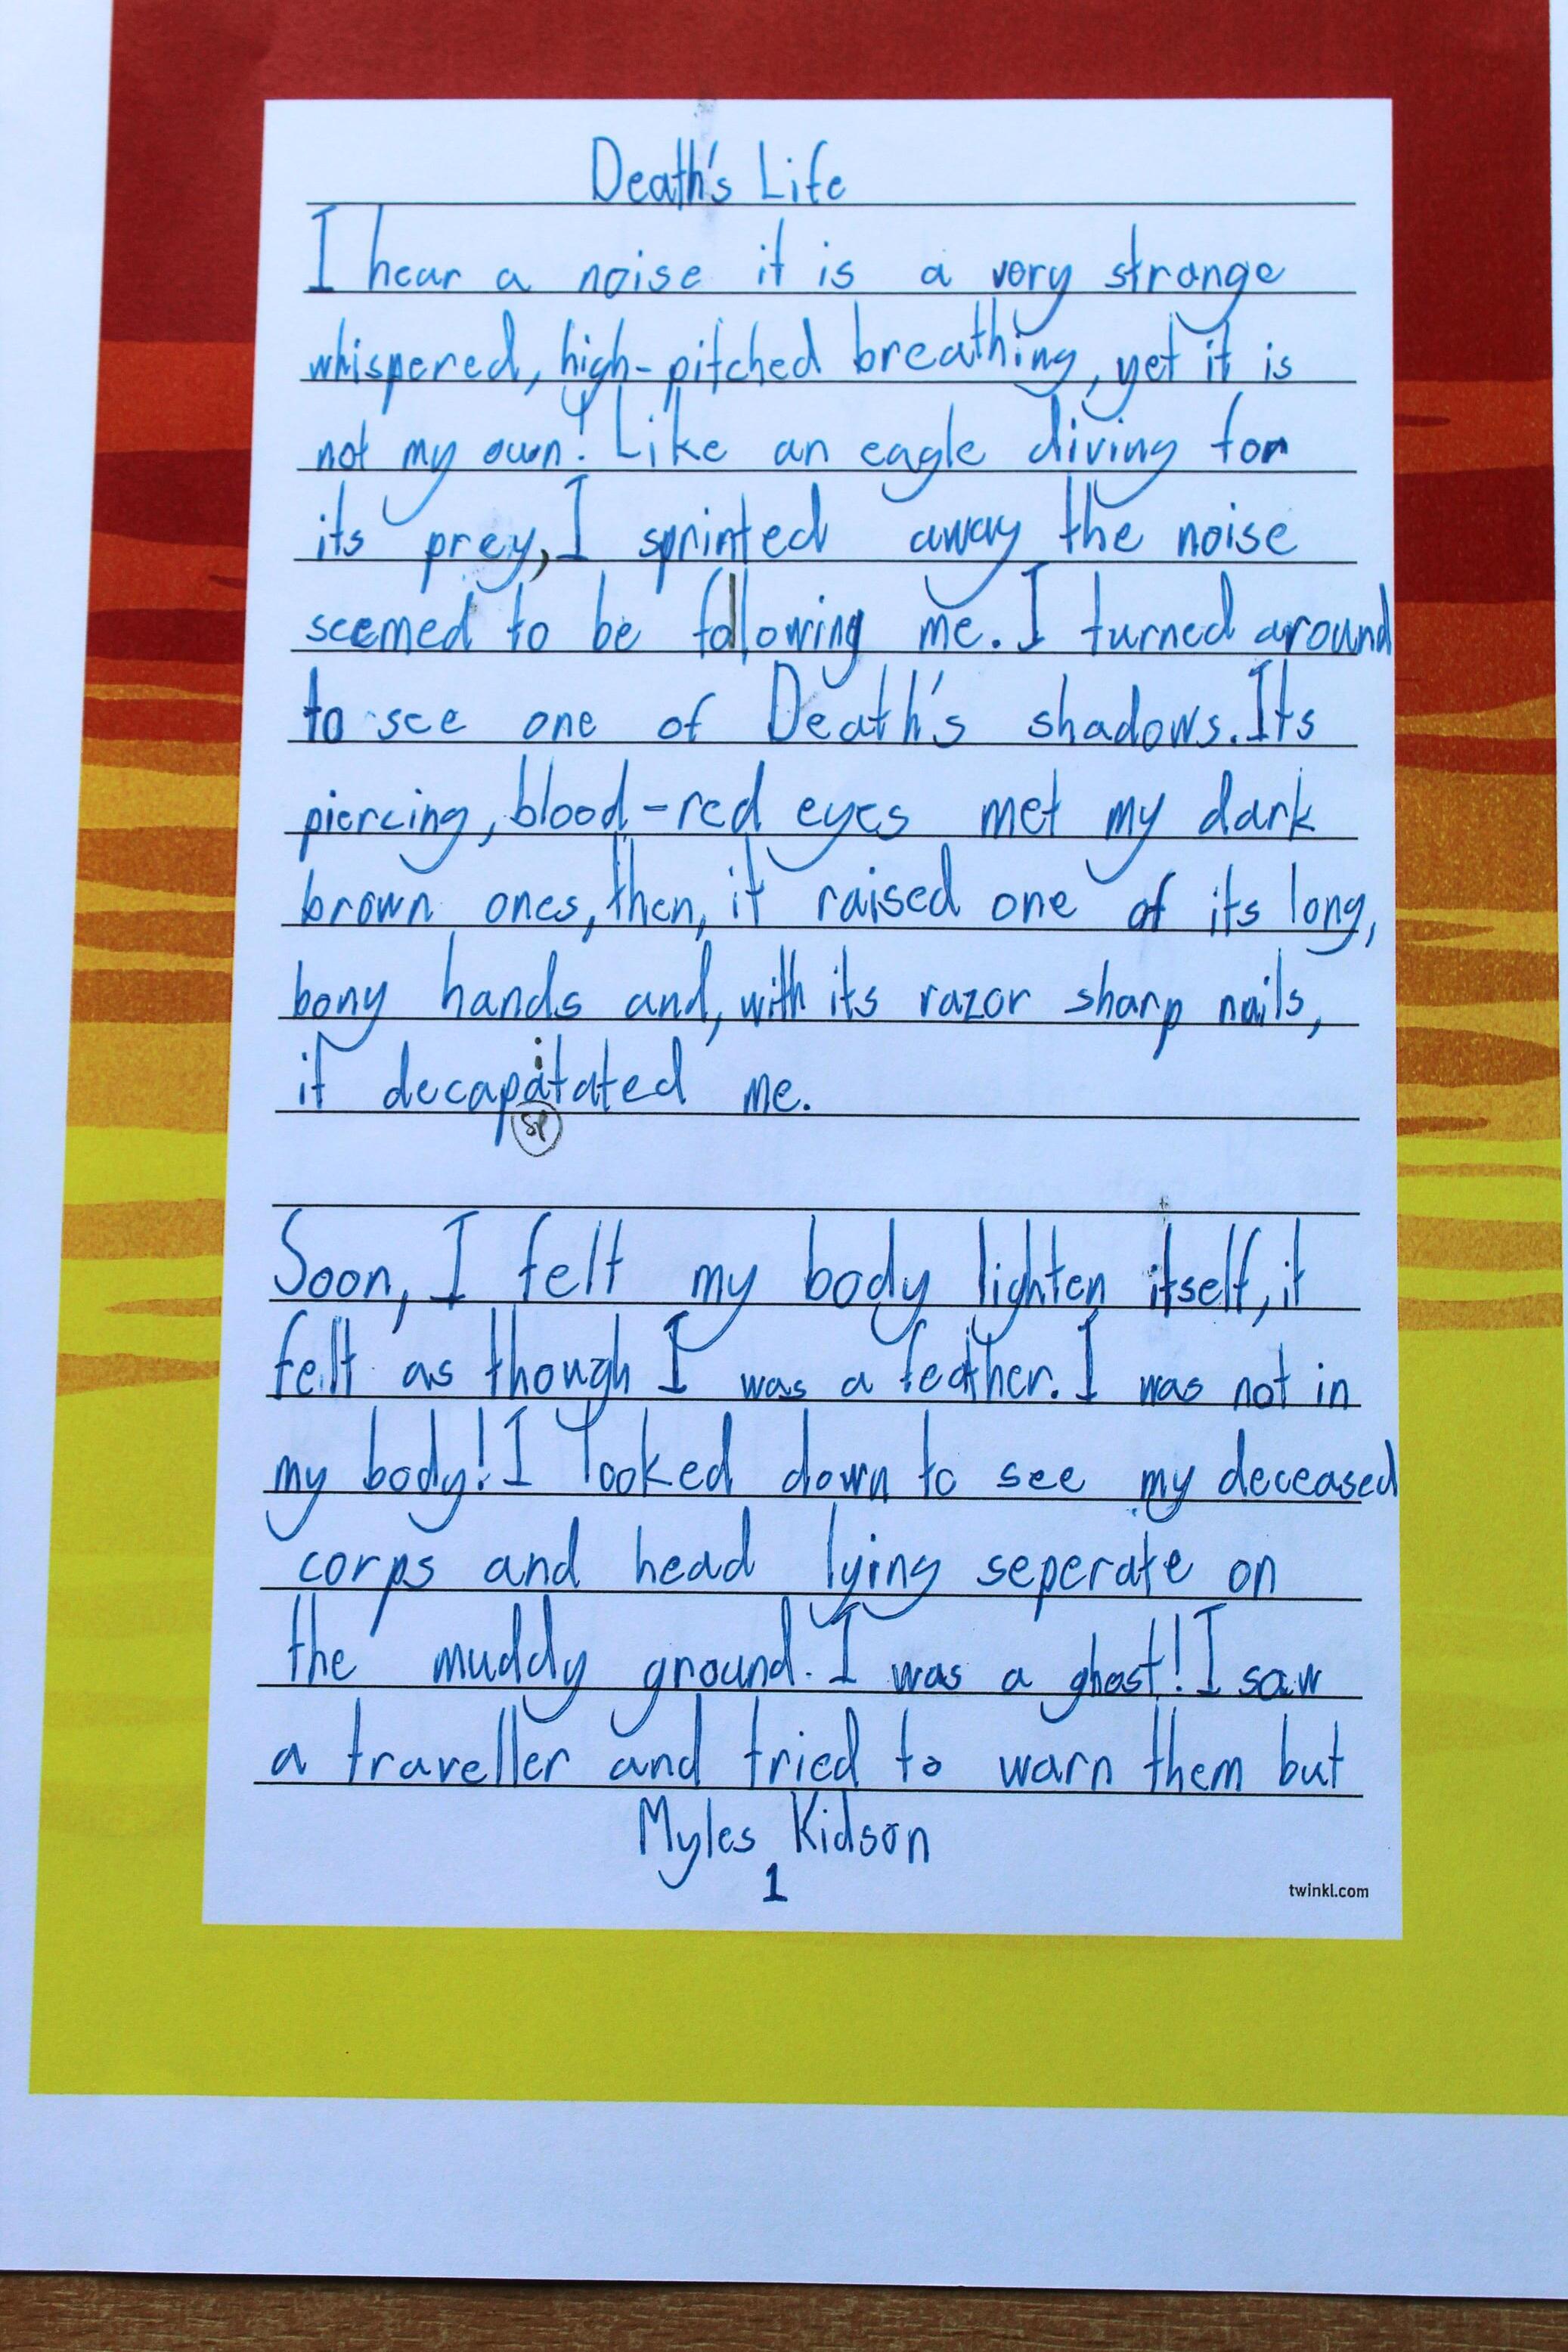 Death's Life
I hear a noise it is a very strange
whispered, high-pitched breathing, yet it is
not my own! Like an eagle diving for
its prey, I sprinted away the noise
seemed to be following me. I turned around
to see one of Death's shadows. Its
piercing, blood-red eyes met my dark
brown ones, then, it raised one of its long,
bony hands and, with its razor sharp nails,
i
it decapatated me.
sp
Soon, I felt my body lighten itself, it
felt as though I was a feather. I was not in
my body! I looked down to see my deceased
corps and head lying seperate on
the muddy ground. I was a ghost! I saw
a traveller and tried to warn them but
Myles Kidson
1
twinkl.com